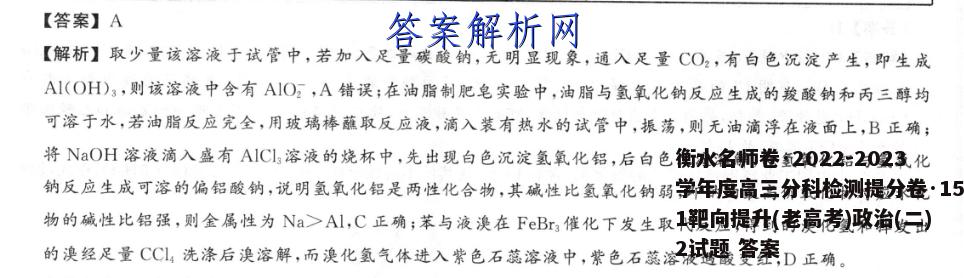 【答案】A
答案解析网
【解析】取少量该溶液于试管中,若加入足量碳酸钠,无明显现象,通入足量 CO₂,有白色沉淀产生,即生成
Al(OH)₃,则该溶液中含有 AlO₂⁻,A 错误;在油脂制肥皂实验中,油脂与氢氧化钠反应生成的羧酸钠和丙三醇均
可溶于水,若油脂反应完全,用玻璃棒蘸取反应液,滴入装有热水的试管中,振荡,则无油滴浮在液面上,B 正确;
将 NaOH 溶液滴入盛有 AlCl₃溶液的烧杯中,先出现白色沉淀氢氧化铝,后白色
钠反应生成可溶的偏铝酸钠,说明氢氧化铝是两性化合物,其碱性比氢氧化钠弱
物的碱性比铝强,则金属性为 Na>Al,C 正确;苯与液溴在 FeBr₃催化下发生取
的溴经足量 CCl₄ 洗涤后溴溶解,而溴化氢气体进入紫色石蕊溶液中,紫色石蕊溶液遇酸变红,D 正确。
衡水名师卷·2022-2023
学年度高三分科检测提分卷·15
1靶向提升(老高考)政治(二)
2试题 答案